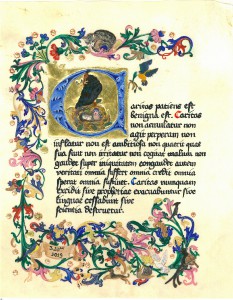 Caritas patiens est
benigna est. Caritas
non aemulatur non
agit perperam non
inflatur non est ambitiosa non quaerit quae
sua sunt non irritatur non cogitat malum non
gaudet super iniquitatem congaudet autem
veritati omnia suffert omnia credit omnia
sperat omnia sustinet. Caritas numquam
excidit sive prophetiae evacuabuntur sive
linguae cessabunt sive
scientia destruetur.